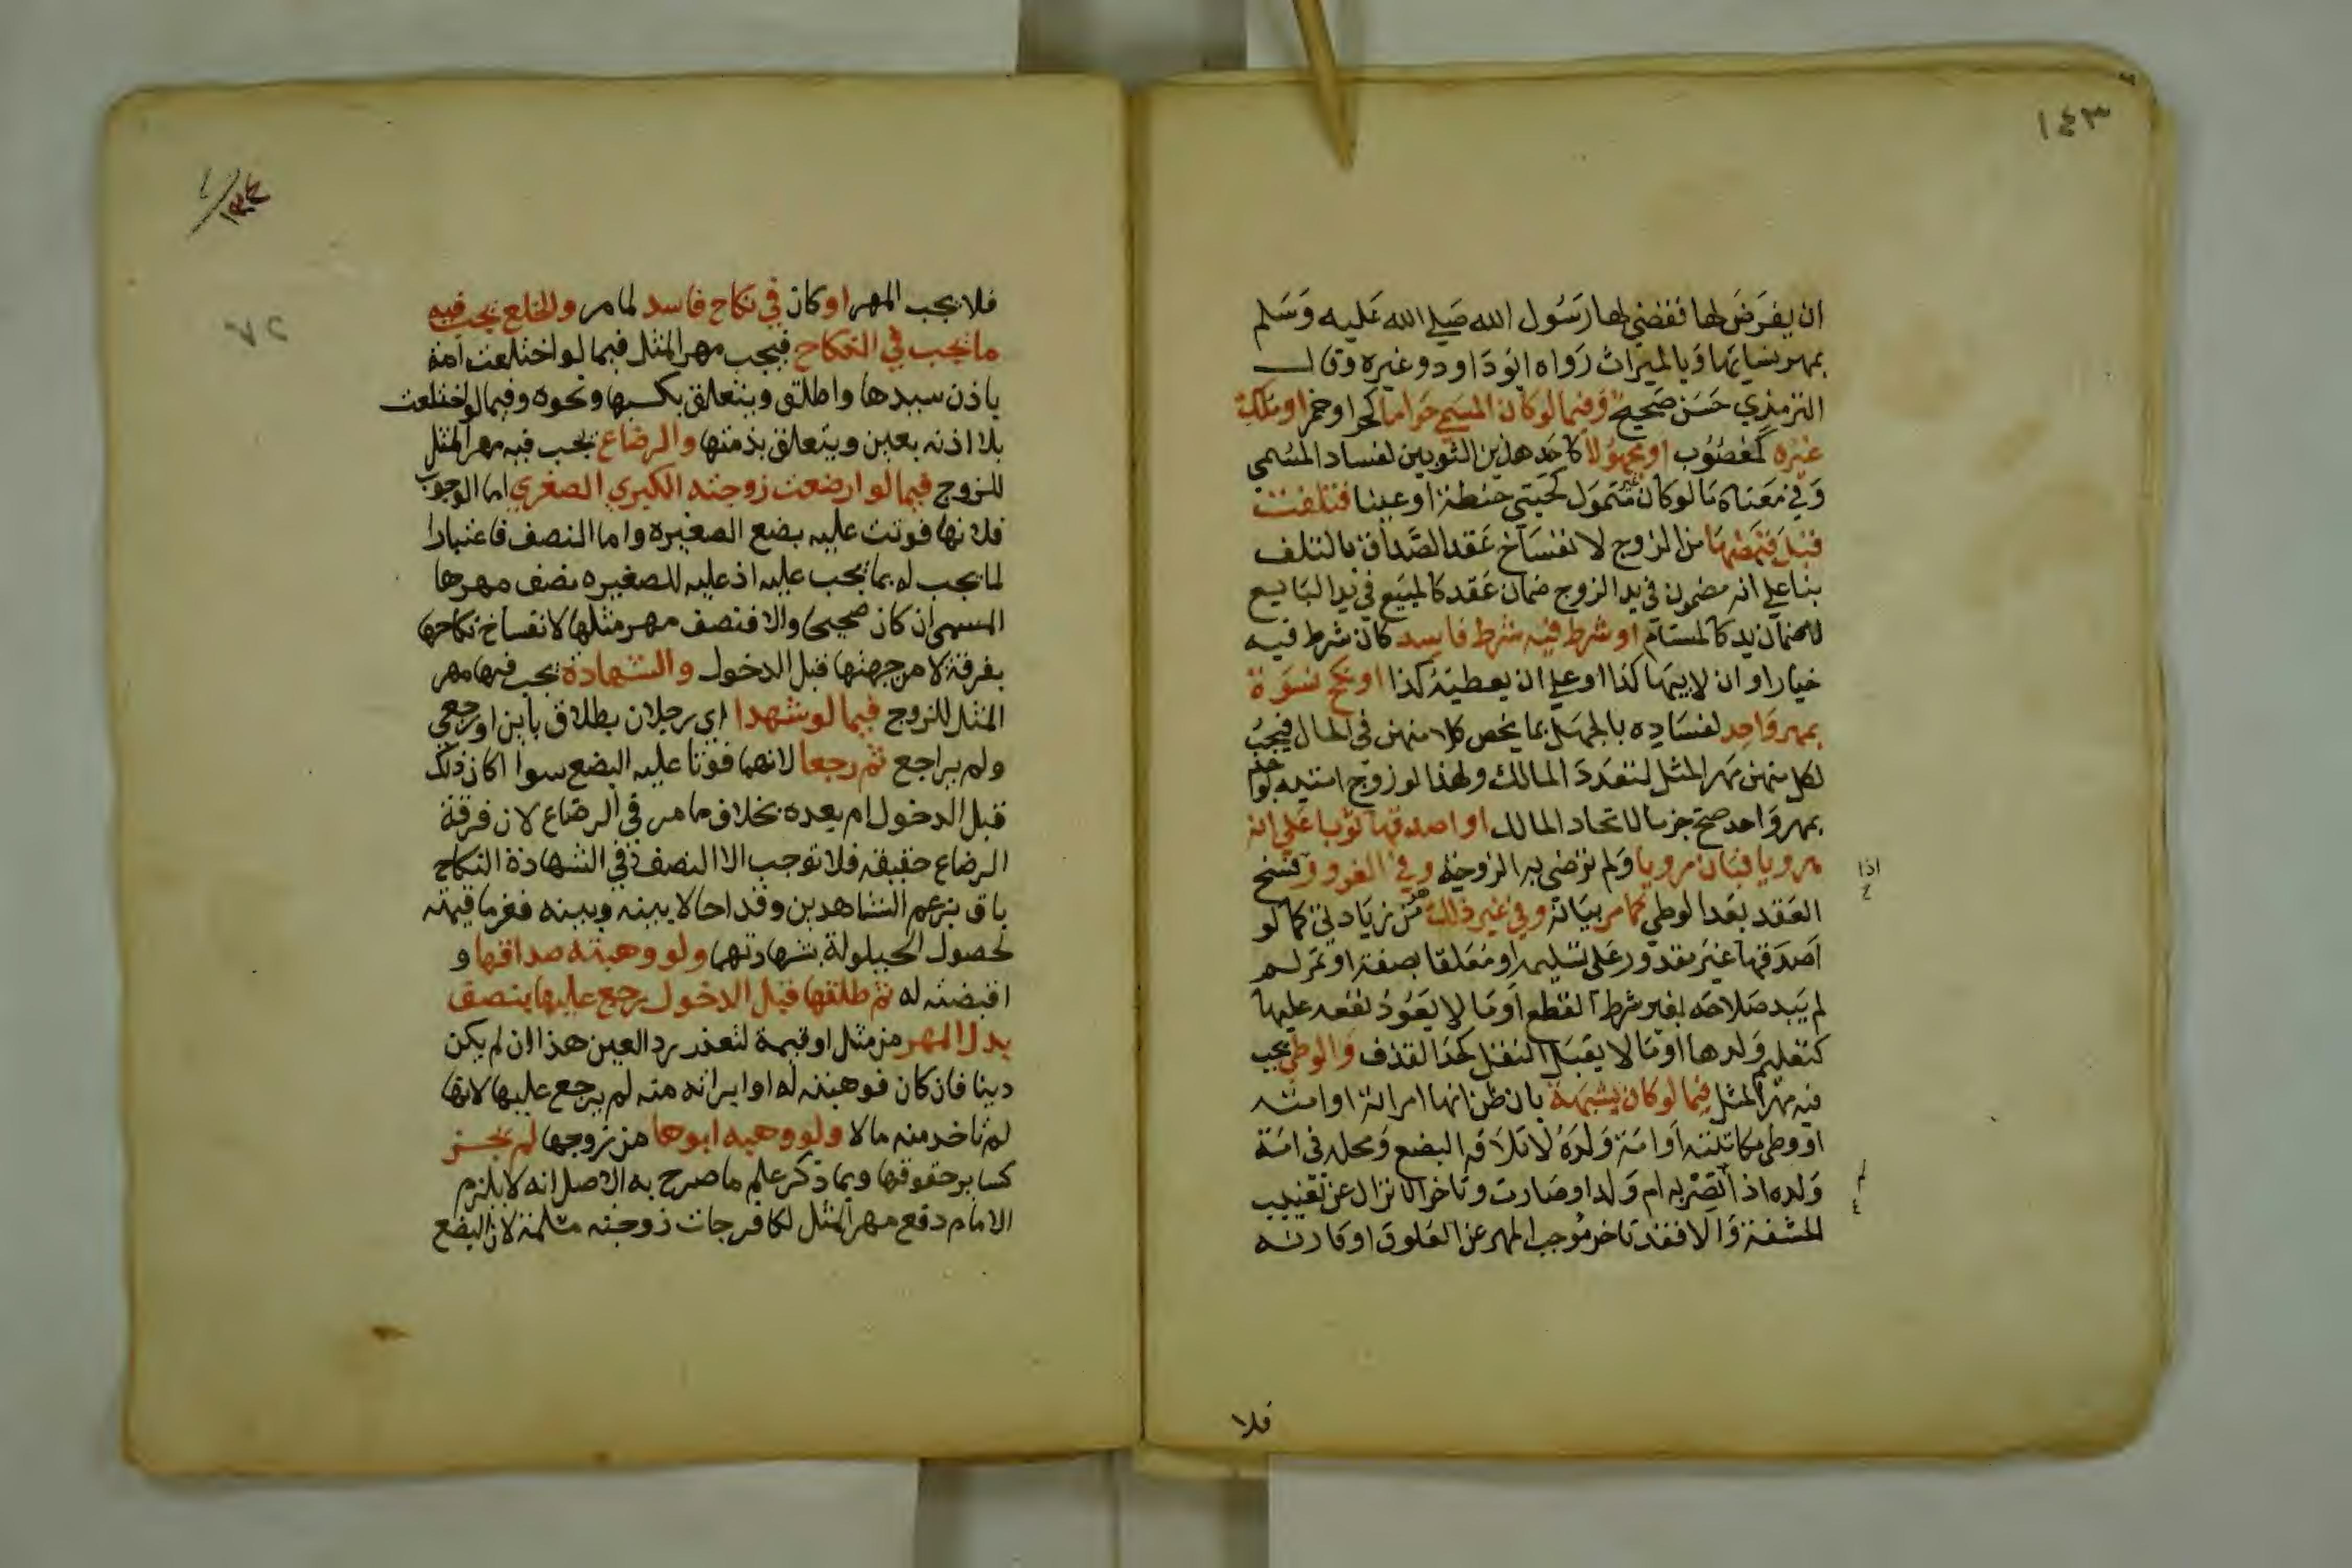 ١٤٣
ان يفرض لها فقضي لها رسول الله صلي الله عليه وسلم
بمهر نسايها وبالميراث رواه ابو داود وغيره وقال
الترمذي حسن صحيح وفيما لو كان المسمي حراما كحر او خمر او ملك
غيره كمغصوب او مجهولا كاحد هذين الثوبين لفساد المسمي
وفي معناه ما لو كان غير متمول كحبتي حنطة او عينا فتلفت
قبل قبضها من الزوج لانفساخ عقد الصداق بالتلف
بنا علي انه مضمون في يد الزوج ضمان عقد كالمبيع في يد البايع
لاضمان يد كالمستام او شرط فيه شرط فاسد كان شرط فيه
خيار او ان لابيها كذا او علي ان يعطيه كذا او نكح نسوة
بمهر واحد لفساده بالجهل بما يخص كلا منهن في الحال فيجب
لكل منهن مهر المثل لتعدد المالك ولهذا لو زوج امتيه بواحد
بمهر واحد صح جزما لاتحاد المالك او اصدقها ثوبا علي انه
مرويا فبان مرويا ولم ترضي به الزوجة وفي الغرور وفسخ
اذا
العقد بعد الوطي كما مر بيانه وفي غير ذلك من زيادتي كما لو
اصدقها غير مقدور علي تسليمه او معلقا بصفة او تمر لم
لم يبد صلاحه بغير شرط القطع او ما لا يعود نفعه عليها
كتعليم ولدها او ما لا يقبل النقل كحد القذف والوطي يجب
فيه مهر المثل فيما لو كان بشبهة بان ظن انها امراته او امته
او وطي مكاتبته او امة ولده لاتلافه البضع ومحله في امة
ولده اذا لم تصر به ام ولد او صارت وتاخر الانزال عن تغييب
الحشفة والا فقد تاخر موجب المهر عن العلوق او قارنه
فلا
٧٢
فلا يجب المهر او كان في نكاح فاسد لما مر والخلع يجب فيه
ما يجب في النكاح فيجب مهر المثل فيما لو اختلعت امة
باذن سيدها واطلق ويتعلق بكسبها ونحوه وفيما لو اختلعت
بلا اذنه بعين ويتعلق بذمتها والرضاع يجب فيه مهر المثل
للزوج فيما لو ارضعت زوجته الكبري الصغري اما الوجوب
فلانها فوتت عليه بضع الصغيره واما النصف فاعتبارا
لما يجب له بما يجب عليه اذ عليه للصغيره نصف مهرها
المسمي ان كان صحيحا والا فنصف مهر مثلها لانفساخ نكاحها
بفرقة لا من جهتها قبل الدخول والشهادة يجب فيها مهر
المثل للزوج فيما لو شهدا اي رجلان بطلاق باين او رجعي
ولم يراجع ثم رجعا لانهما فوتا عليه البضع سوا اكان ذلك
قبل الدخول ام بعده بخلاف ما مر في الرضاع لان فرقة
الرضاع حقيقه فلا توجب الا النصف في الشهادة النكاح
باق بزعم الشاهدين وقد احالا بينه وبينه فغرما قيمته
لحصول الحيلولة بشهادتهما ولو وهبته صداقها و
اقبضته له ثم طلقها قبل الدخول رجع عليها بنصف
بدل المهر من مثل او قيمة لتعذر رد العين هذا ان لم يكن
دينا فان كان فوهبته له او ابراته منه لم يرجع عليها لانها
لم تاخذ منه مالا ولو وهبه ابوها من زوجها لم يجز
كساير حقوقها وبما ذكر علم ما صرح به الاصل انه لا يلزم
الامام دفع مهر المثل لكافر جات زوجته مسلمة لان البضع